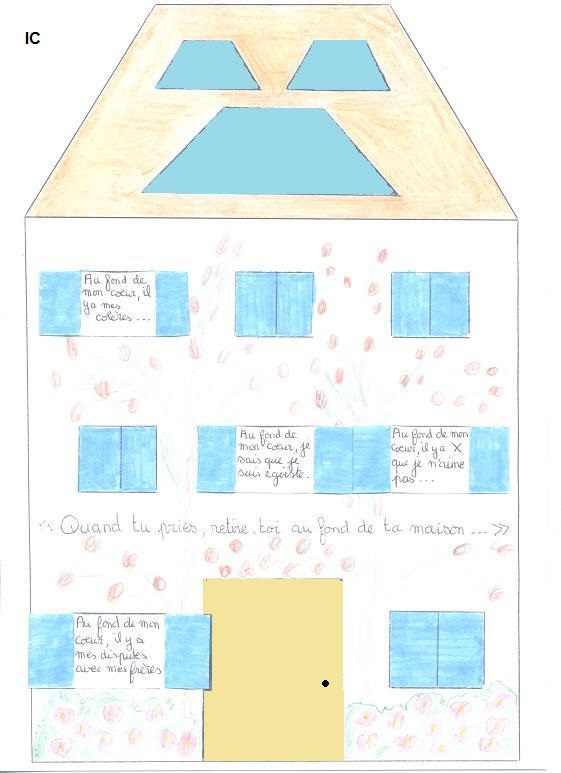 IC
Au fond de
mon cœur, il
y a mes
colères ...
Au fond de
mon cœur, je
sais que je
suis égoïste.
Au fond de mon
cœur, il y a X
que je n'aime
pas ...
Quand tu pries, retire-toi au fond de ta maison ... >>
Au fond de mon
cœur, il y a
mes disputes
avec mes frères